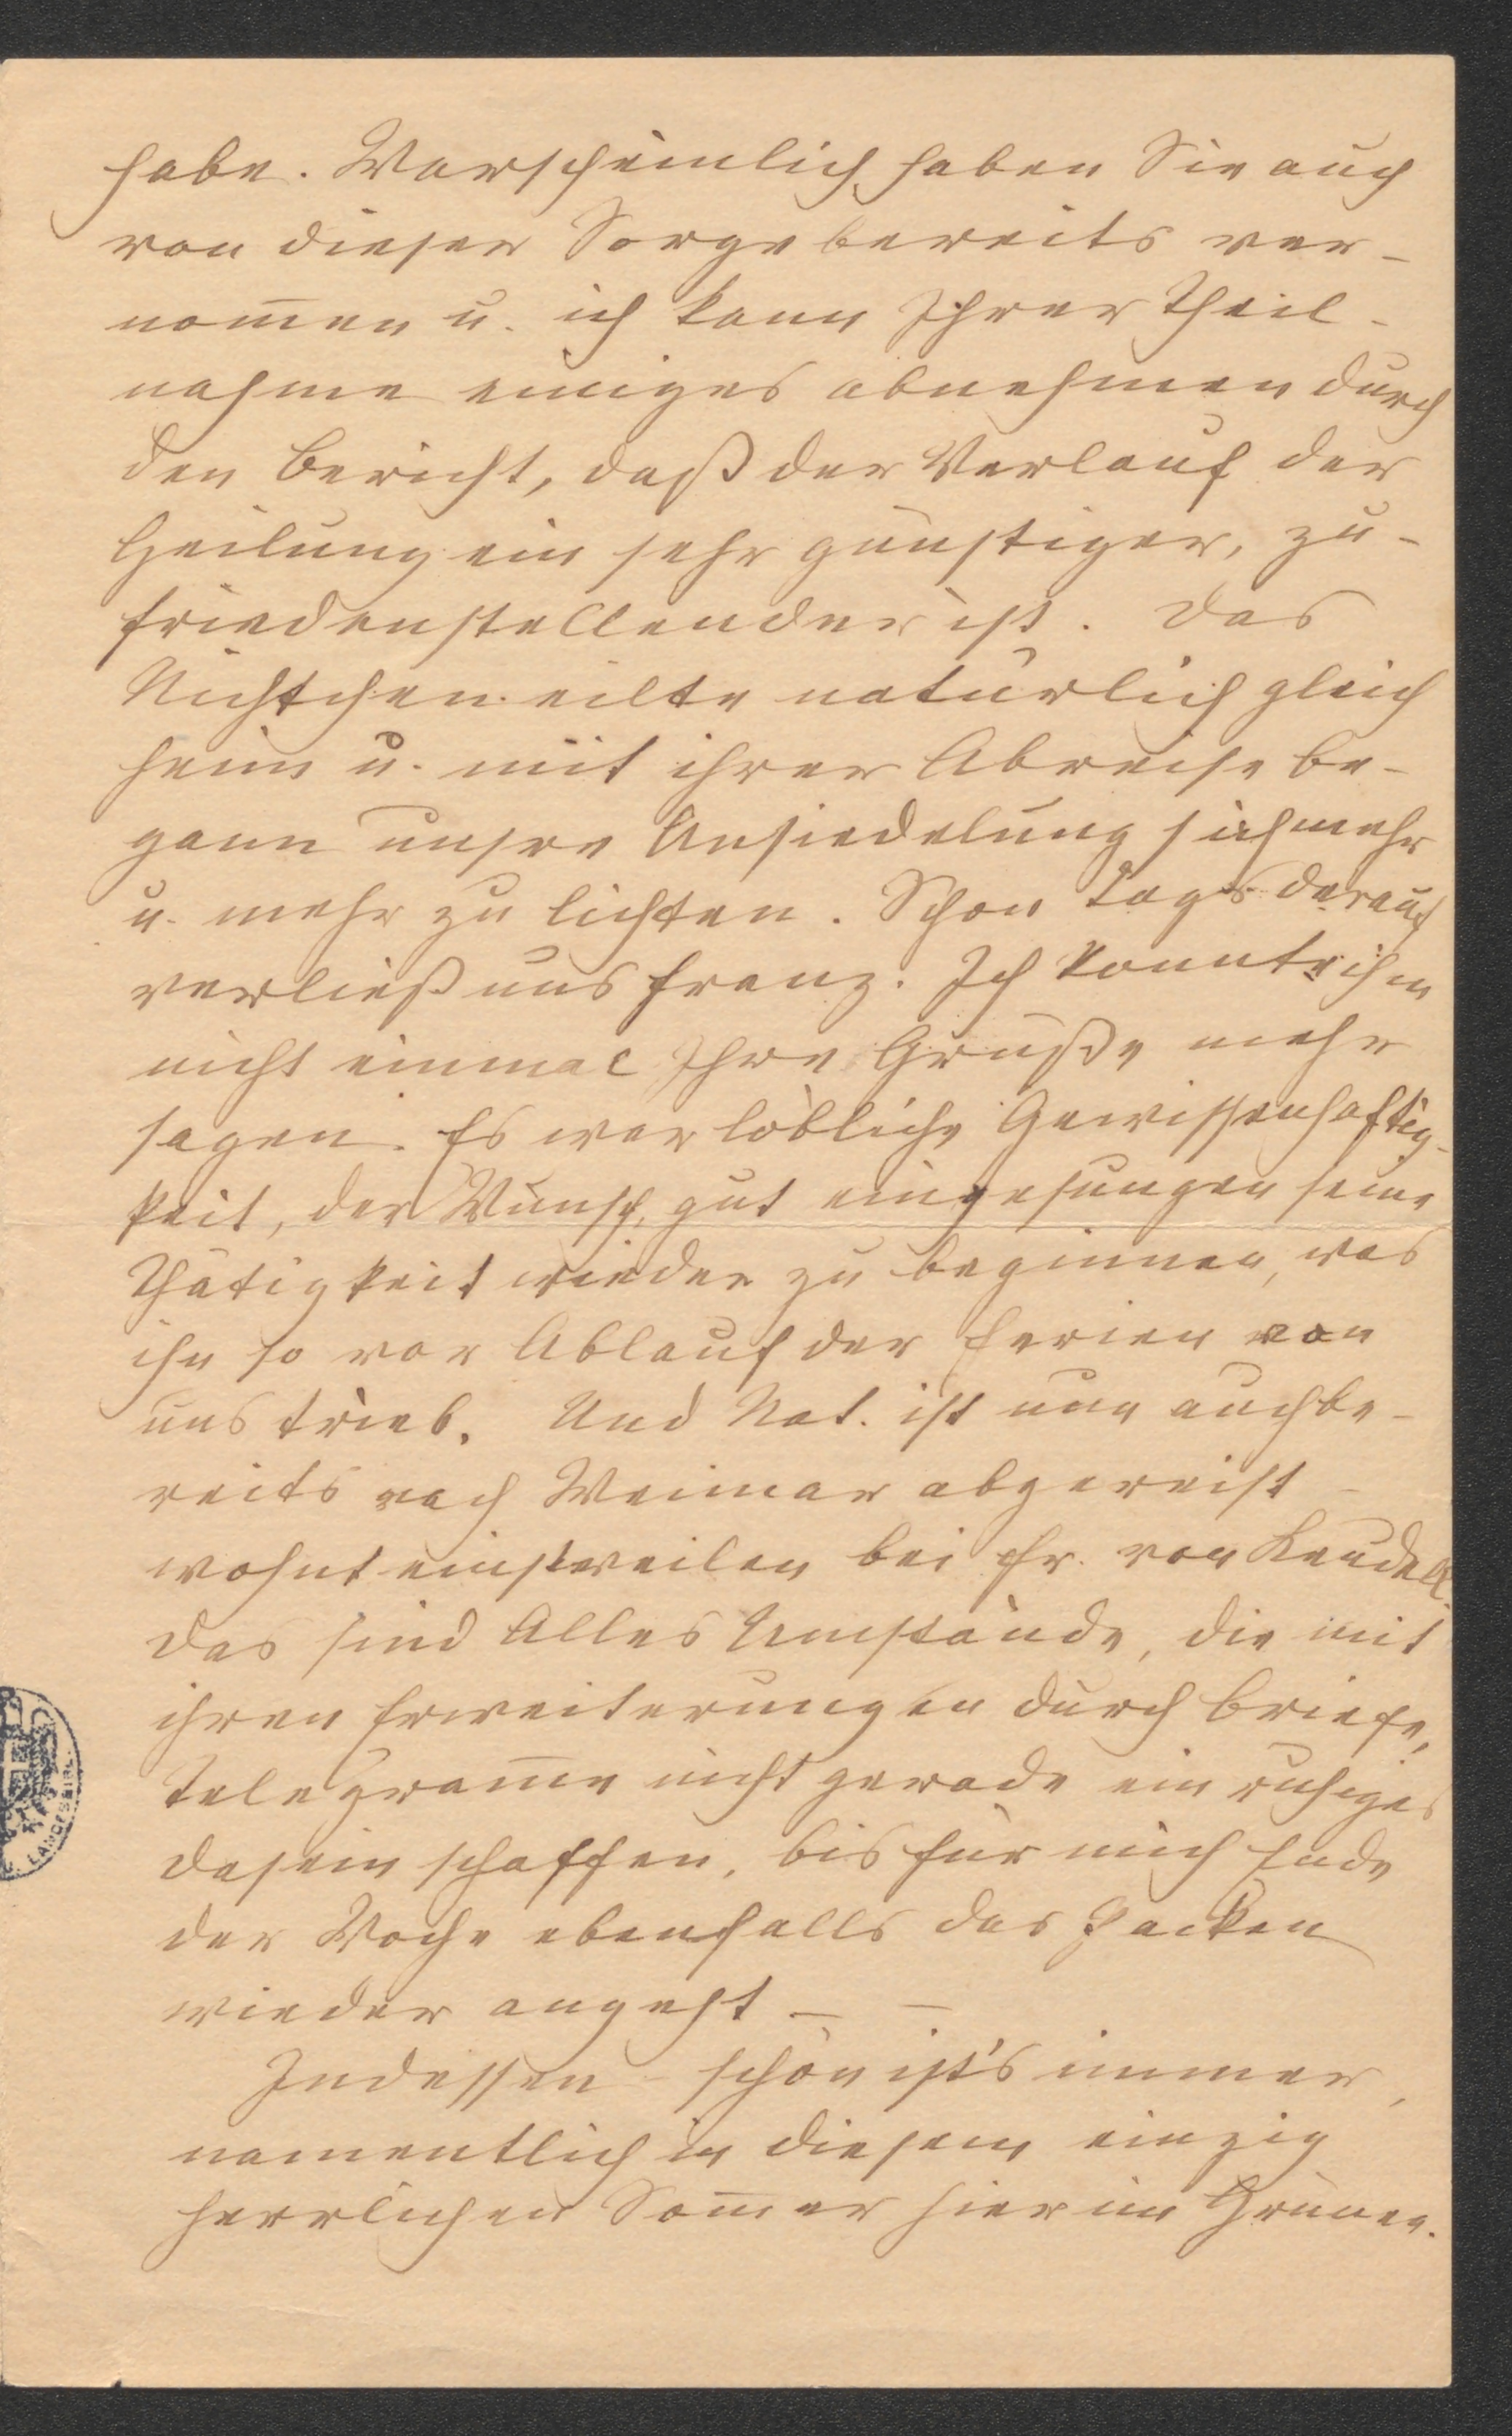 habe. Warscheinlich haben Sie auch
von dieser Sorge bereits ver-
nom̅en u. ich kann Ihrer Theil-
nahme einiges abnehmen durch
den Bericht, daß der Verlauf der
Heilung ein sehr günstiger, zu-
friedenstellender ist. Das
Nichtchen eilte natürlich gleich
heim u. mit ihrer Abreise be-
gann unsre Ansiedelung sich mehr
u. mehr zu lichten. Schon Tags darauf
verließ uns Franz. Ich konnte ihm
nicht einmal Ihre Grüße mehr
sagen. Es war löbliche Gewissenhaftig-
keit, der Wunsch, gut eingesungen seine
Thätigkeit wieder zu beginnen, was
ihn so vor Ablauf der Ferien von
uns trieb. Und Nat. ist nun auch be-
reits nach Weimar abgereist –
wohnt einstweilen bei Fr. von Keudell.
Das sind Alles Umstände, die mit
ihren Erweiterungen durch Briefe,
Telegram̅e nicht gerade ein ruhiges
Dasein schaffen, bis für mich Ende
der Woche ebenfalls das Packen
wieder angeht – –
Indessen – schön ist's immer,
namentlich in diesem einzig
herrlichen Som̅er hier im Grünen.
LANDESBI